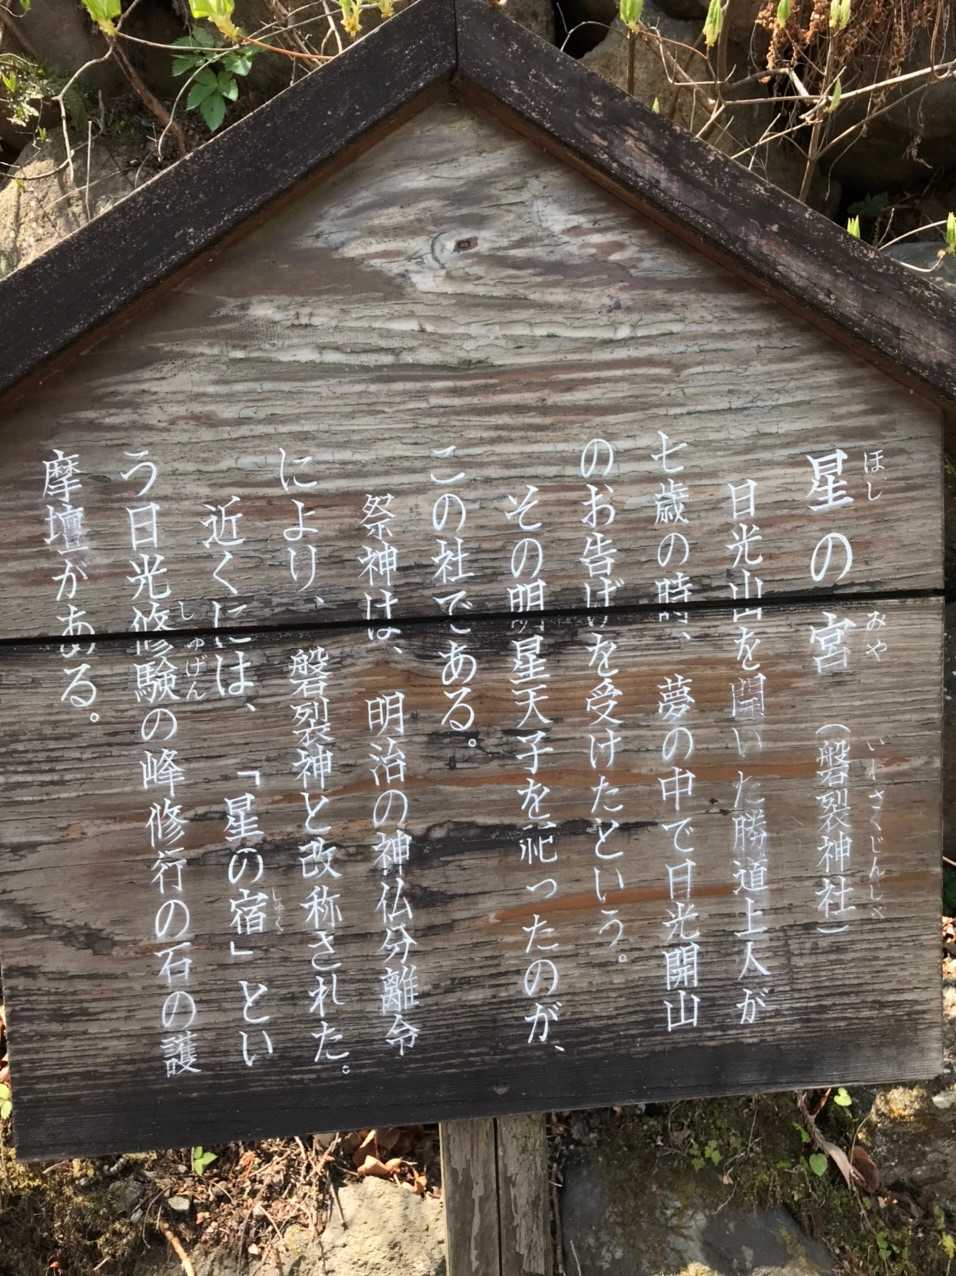 星の宮（磐裂神社）
ほし
みや
いわさくじんしゃ
日光山を開いた勝道上人が
七歳の時、夢の中で日光開山
のお告げを受けたという。
その明星天子を祀ったのが、
この社である。
祭神は、明治の神仏分離令
により、磐裂神と改称された。
近くには、「星の宿」とい
しゅく
う日光修験の峰修行の石の護
しゅげん
摩壇がある。